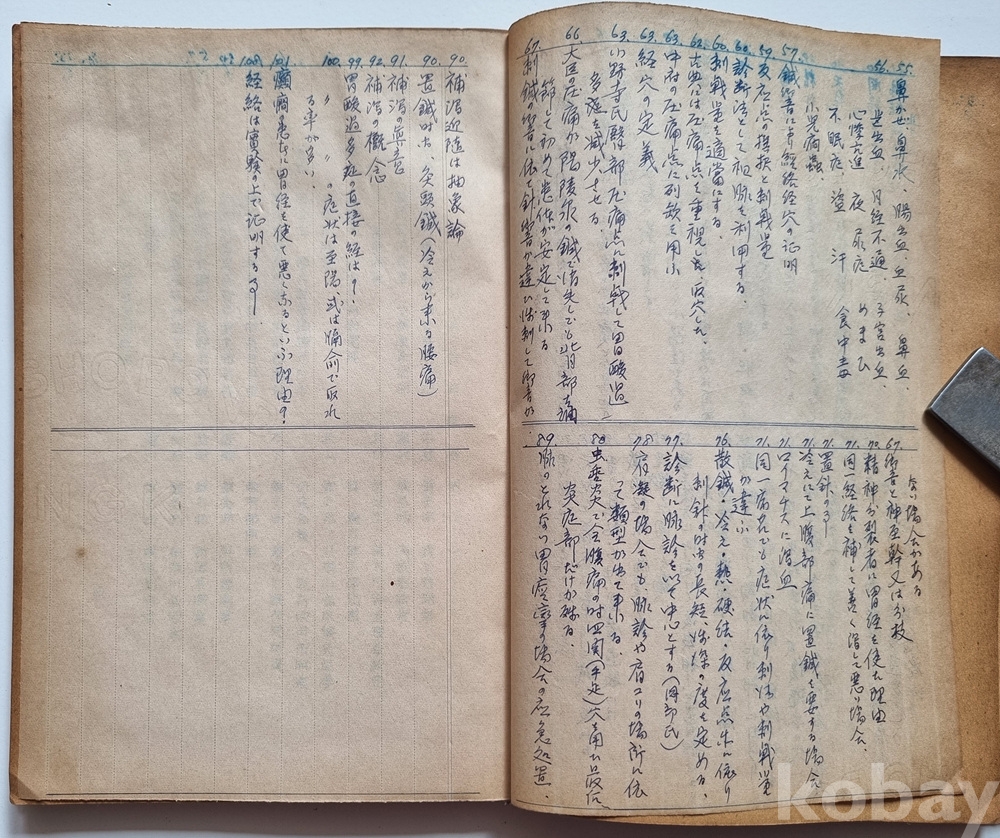 55. 鼻かぜ、鼻水、腸出血、血尿、鼻血、
56. 歯出血、月経不通、子宮出血、
心悸亢進 夜尿症 めまひ
不眠症、盗汗 食中毒
小児疳蟲、
57. 鍼響による経絡経穴の証明
59. 反応点の探択と刺戟量
60. 診断法として祖脉を利用する、
60. 刺戟量を適当にする、
62. 古典には圧痛点を重視した取穴した、
63. 中府の圧痛点に列欠を用ふ
63. 経穴の定義
63. 小野寺氏臀部圧痛点に刺戟して胃酸過
多症を減少させる、
66. 大臣の圧痛が陽陵泉の鍼で消失しても背部を補
節して初めて患体が安定して来る
67. 刺鍼の響に依て針響が違ひ浅刺して響きが
ない場合がある
67. 響きと神至幹又は分枝
70. 精神分裂者に胃経を使た理由
71. 同一経絡を補して善く瀉して悪い場合、
71. 置針の事
71. 冷えにて上腹部痛に置鍼を要する場合
71. ロイマチスに瀉血
71. 同一病名でも症状に依り刺法や刺戟量
が違ふ
76. 散鍼・冷え・熱・硬結・反応点等に依り
刺針の時間の長短、浅深の度を定める、
77. 診断に脉診を以て中心とする(岡部氏)
78. 肩凝の場合でも、脉診や肩コリの場所に依
って類型が出て来る、
88. 虫垂炎で全腹痛の時四関(手足)穴を用ひ最後
炎症部だけが残る、
89. 脉のとれない胃痙攣の場合の応急処置、
90. 補瀉迎随は抽象論
90. 置鍼時間、灸頭鍼(冷えから来る腰痛)
91. 補瀉の真意
92. 補瀉の概念
99. 胃酸過多症の直接の経は?、
100. 〃 〃 の症状は至陽、或は膈俞で取れ
る事が多い、
101. 癲癇患者に胃経を使て悪くなるといふ理由?
108. 経絡は実験の上で証明する事、
kobay